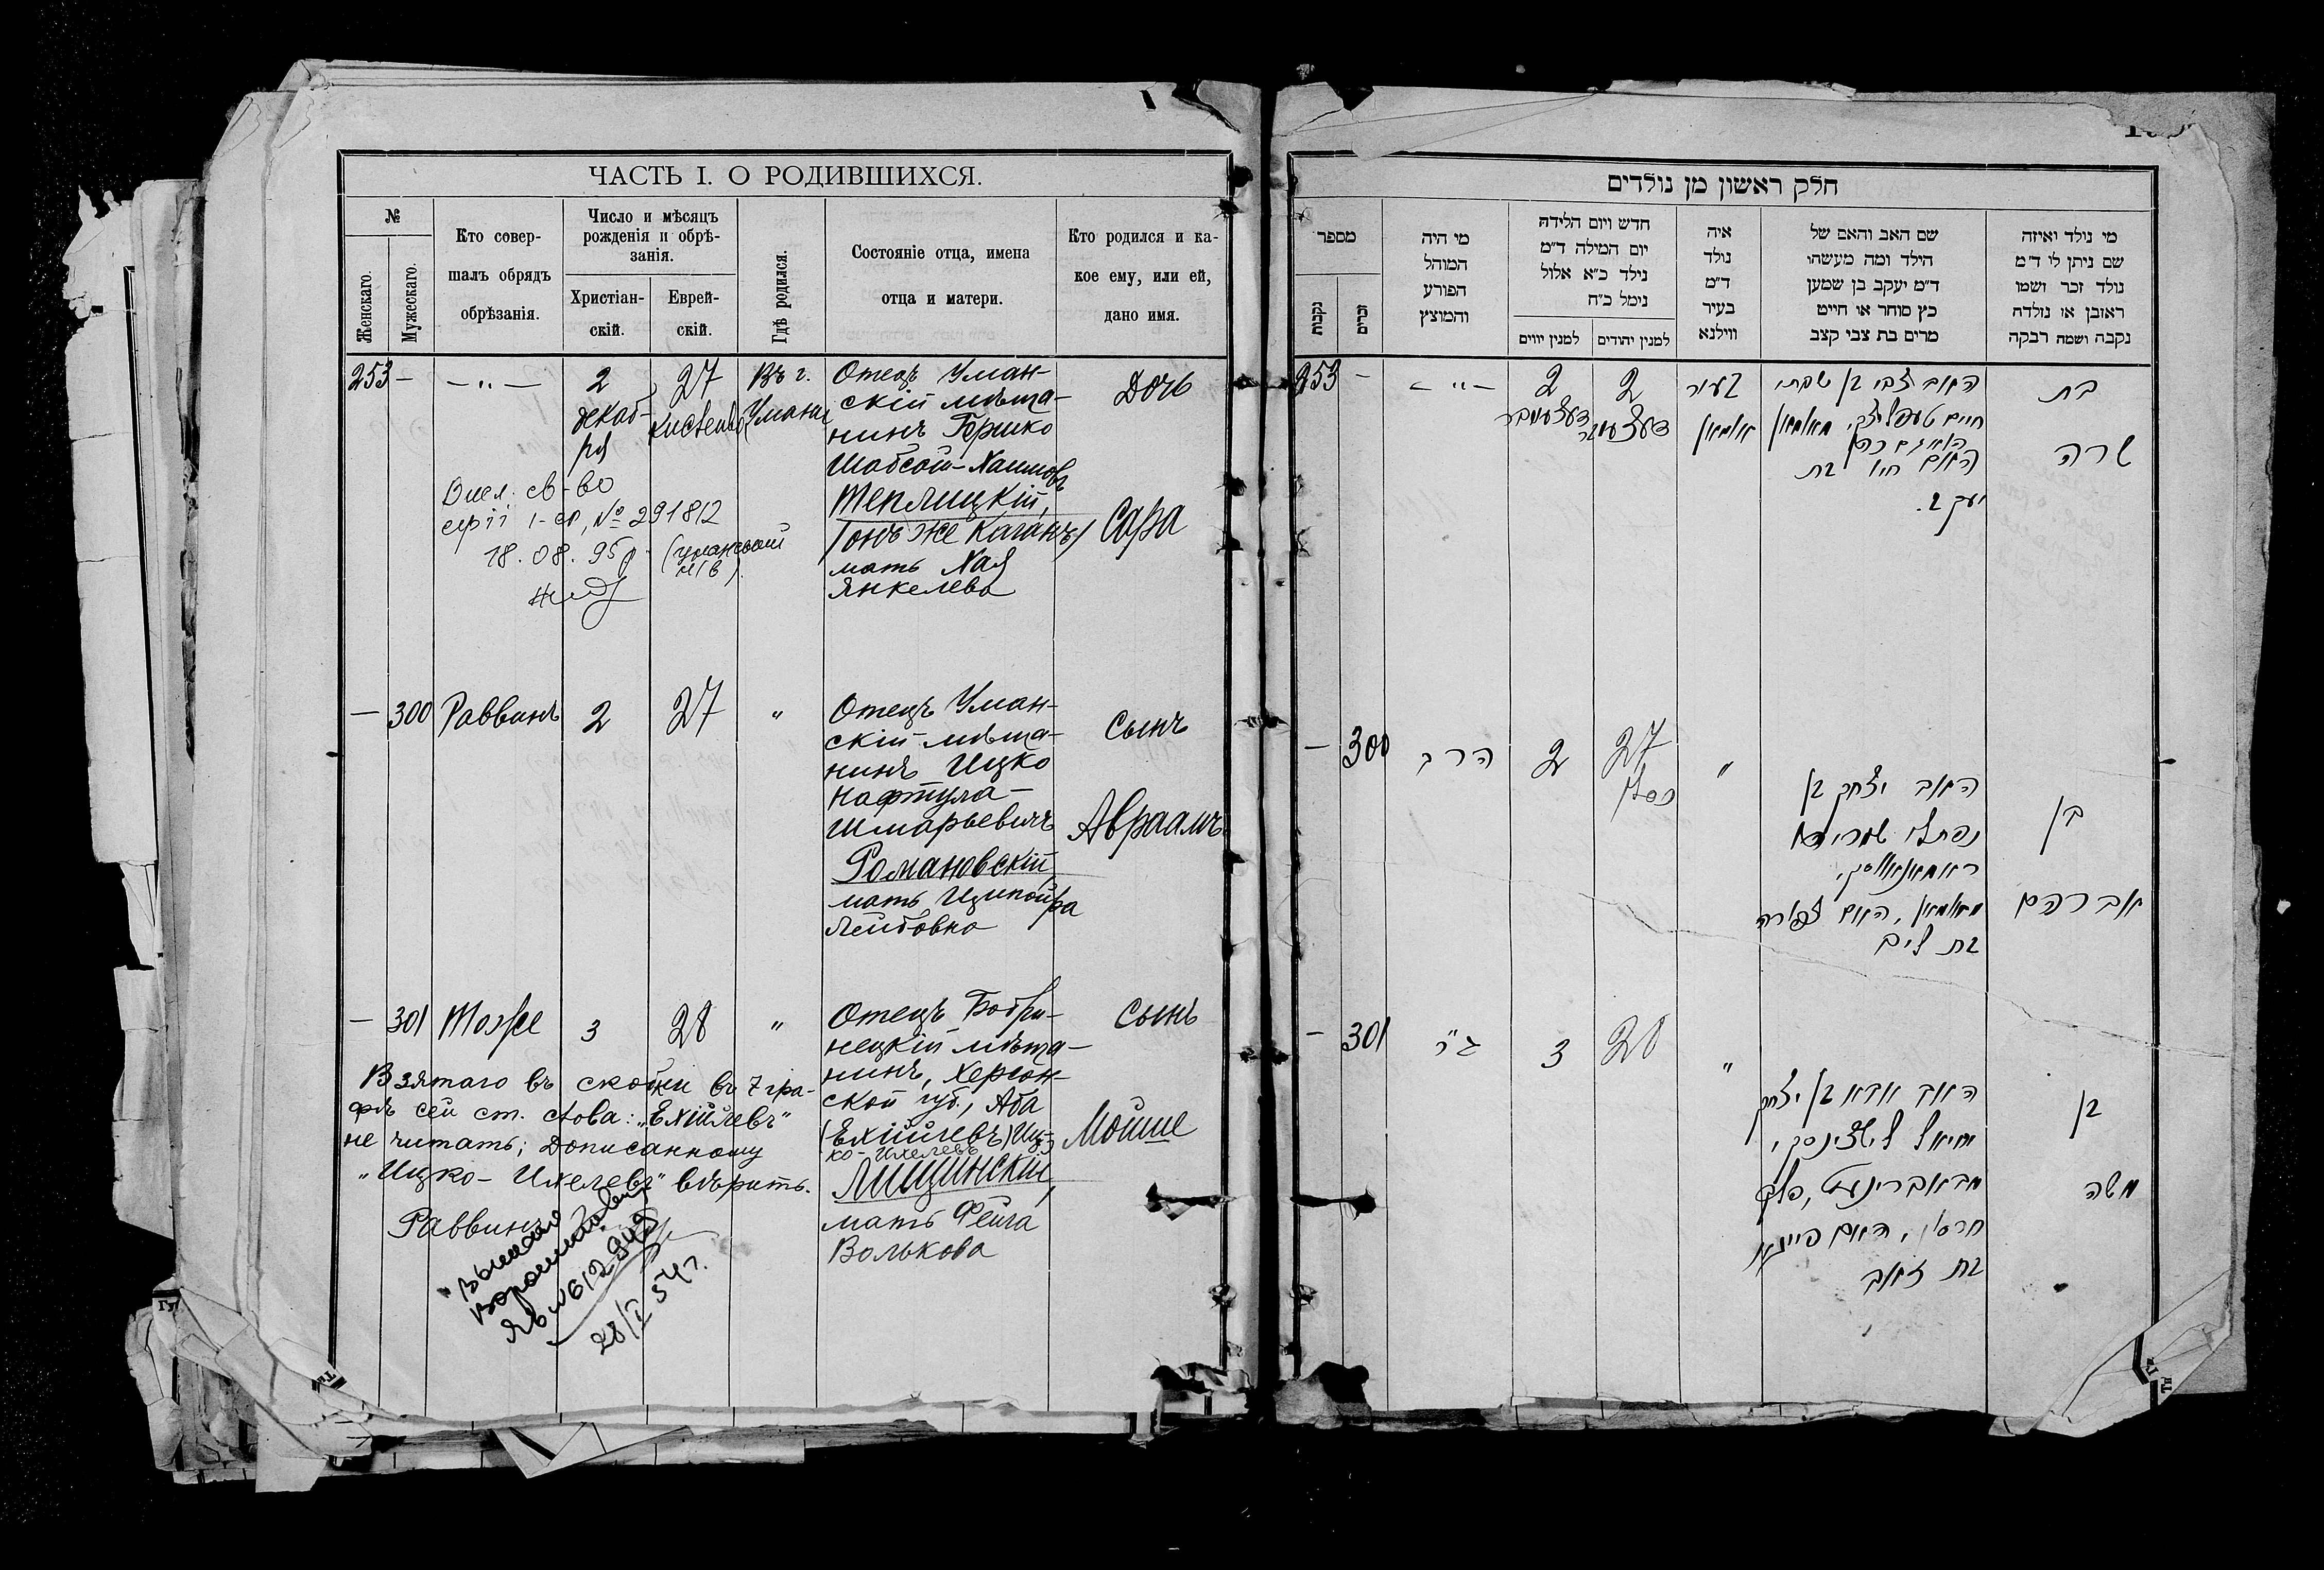 ЧАСТЬ I. О РОДИВШИХСЯ.
№
Женскаго.
Мужескаго.
Кто совер-
шалъ обрядъ
обрѣзанія.
Число и мѣсяцъ
рожденія и обрѣ-
занія.
Христіан-
скій.
Еврей-
скій.
Гдѣ родился.
Состояніе отца, имена
отца и матери.
Кто родился и ка-
кое ему, или ей,
дано имя.
253 — — „ —
2
декаб-
ря
27
Кислева
Въ г.
Умани
Отецъ Уман-
скій мѣща-
нинъ Гершко
Шабсой-Хаимовъ
Теплицкій,
(онъ же Каганъ)
мать Хая
Янкелева
Дочь
Сара
св-во
серії I-ср, № 291812
18.08.95р. (уманський
— 300 Раввинъ 2 27 „
Отецъ Уман-
скій мѣща-
нинъ Ицко
Нафтула-
Шмарьевичъ
Романовскій,
мать Ципойра
Лейбовна
Сынъ
Авраамъ
— 301 Тоже 3 28 „
Отецъ Бобри-
нецкій мѣща-
нинъ, Херсон-
ской губ., Аба
(Ехійлевъ) Иц-
ко-Ихелевъ
Лищинскій,
мать Фейга
Волькова
Сынъ
Мойше
Взятаго въ скобки въ 7 гра-
фѣ сей ст. слова: „Ехійлевъ“
не читать; дописанному
„Ицко-Ихелевъ“ вѣрить.
Раввинъ
28/I 54г.
חלק ראשון מן נולדים
מספר
נקבות
זכרים
מי היה
המוהל
הפורע
והמוצץ
חדש ויום הלידה
יום המילה ד״מ
נילד כ״א אלול
נימל כ״ח
למנין יווים
למנין יהודים
איה
נולד
ד״מ
בעיר
ווילנא
שם האב והאם של
הילד ומה מעשהו
ד״מ יעקב בן שמען
כץ סוחר או חייט
מרים בת צבי קצב
מי נולד ואיזה
שם ניתן לו ד״מ
נולד זכר ושמו
ראובן או נולדה
נקבה ושמה רבקה
253 — — „ —
2
דעצעמבר
2
דעצעמבר
בעיר
אומאן
האב צבי בן שבתי
חיים טעפליצקי, מאומאן
האם חיה בת
יעקב.
בת
שרה
— 300 הרב 2 27
כסלו
„
האב יצחק בן
נפתלי שמריהו
ראמאנאווסקי,
מאומאן, האם צפורה
בת ליב
בן
אברהם
— 301 ג״ר 3 28 „
האב אבא בן יצחק
יחיאל לישצינסקי,
מבאברינעץ, פלך
חרסון, האם פייגא
בת זאב
בן
משה